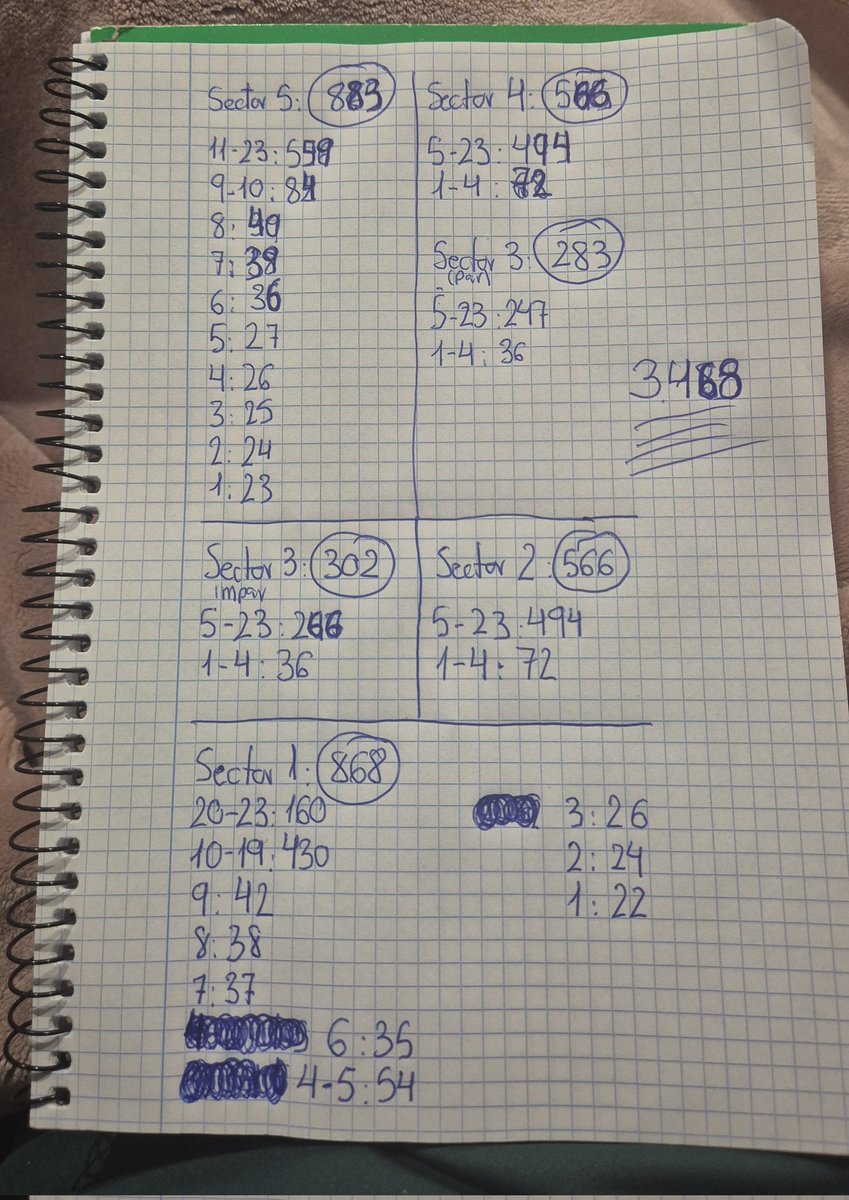 Sector 5: 883
11-23:
9-10: 84
8:
7: 38
6: 36
5: 27
4: 26
3: 25
2: 24
1: 23
Sector 4: 566
5-23: 494
1-4: 72
Sector 3: 283
(par)
5-23: 247
1-4: 36
3.468
Sector 3: 302
impar
5-23: 266
1-4: 36
Sector 2: 566
5-23: 494
1-4: 72
Sector 1: 868
20-23: 160
10-19: 430
9: 42
8: 38
7: 37
6: 35
4-5: 54
3: 26
2: 24
1: 22